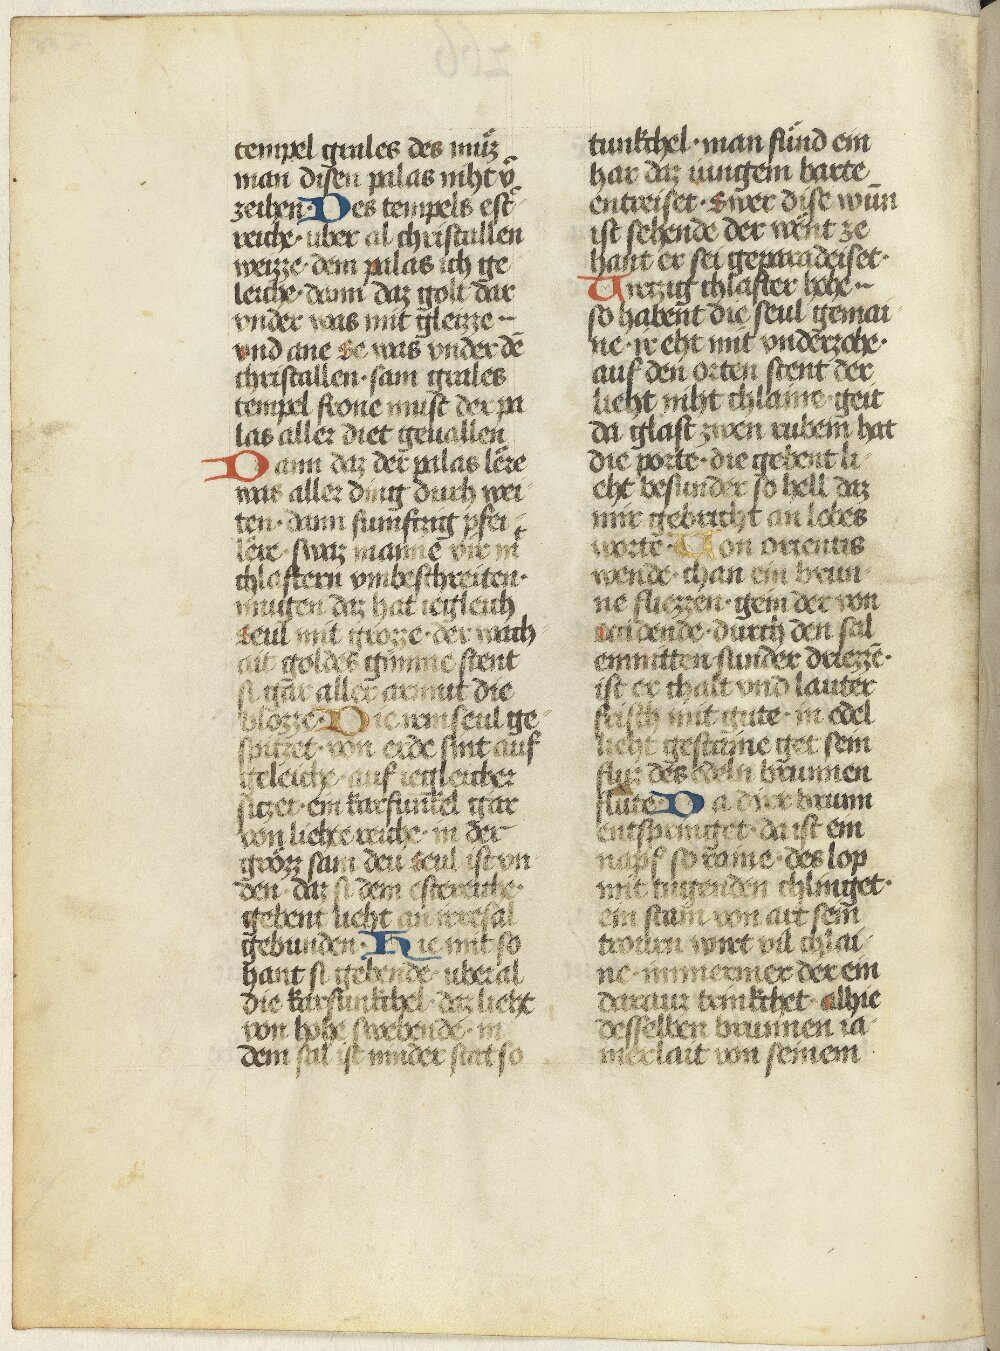 tempel grales des muͤz
man disen palas niht v̄
zeihen · Des tempels est
reiche · uber al christallen
weizze · dem palas ich ge
leiche · dann daz golt dar
vnder was mit gleizze
vnd ane Se was vnder dē
christallen · sam grales
tempel frone must der pa
las aller diet geuallen
Dann daz der palas lere
was aller ding durch wei
ten · dann fumftzig pfei
lere · swaz manne vir mi
chlaftern vmbeschreiten ·
mugen daz hat iegleich
Seul mit grozze · der wach
ait goldes gimme stent
si gar aller armut die
blozze · Die seul ge
spitzet · von erde sint auf
geleiche · auf iegleicher
sitzet · ein karfunkel gar
von liehte reiche · in der
grözz sam deu Seul ist vn
den · daz si dem estereiche ·
gebent lieht an irresal
gebunden · Hie mit so
hant si gebende · uberal
die karfunkchel · daz lieht
von hohe swebende · in
dem sal ist minder stat so
tunkchel · man fünd ein
har daz iungem barte
entreiset · Swer dise wun̄
ist sehende der went ze
hant er sei geparadeiset ·
Virtzig chlafter hohe
so habent die seul gemai
ne · ir eht mit vnderzohe ·
auf den orten stent der
lieht niht chlaine · geit
da glast zwen rubein hat
die porte · die gebent li
eht besunder so hell daz
mir gebricht an lobes
worte · Von orientis
wende · chan ein brun
ne fliezzen · gein der von
dende · durch den sal
enmitten sunder driezzē ·
ist er chalt vnd lauter
frisch mit gute · in edel
lieht gestaine get sein
fluz des edeln brunnen
flute · Da dirr brunn
entspringet · da ist ein
napf so raine · des lop
mit tugenden chlinget ·
ein stain von art sein
trourn wirt vil chlai
ne · immermer der ein
daraus trinkchet · alhie
desselben brunnen ia
merlait von seinem